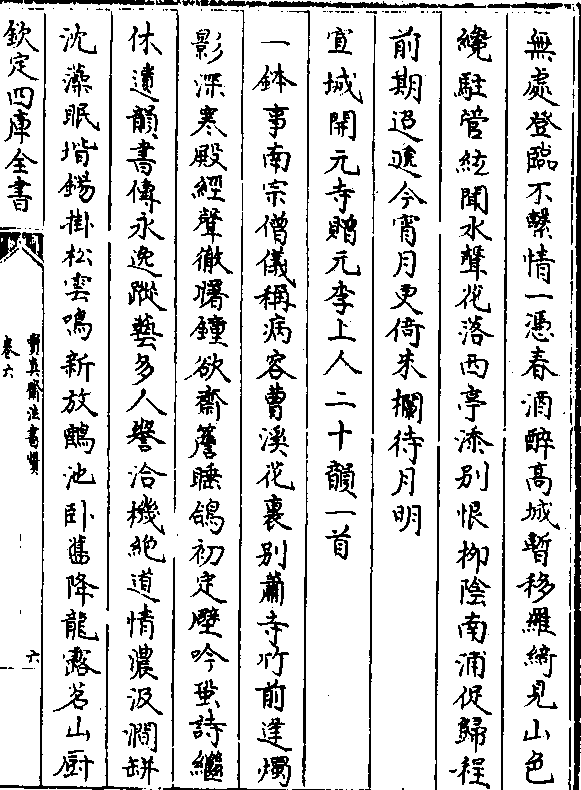 無處登臨不繫情一憑春酒醉高城暫移羅綺見山色
纔駐管絃聞水聲花落西亭添别恨柳陰南浦促歸程
前期迢遞今宵月更倚朱欄待月明
宣城開元寺贈元孚上人二十韻一首
一鉢事南宗僧儀稱病容曹溪花裏别蕭寺竹前逢燭
影深寒殿經聲徹曙鐘欲齋簷睡鴿初定壁吟蛩詩繼
休遺韻書傳永逸蹤藝多人譽洽機絶道情濃汲澗缾
沈藻眠堦錫掛松雲鳴新放鶴池卧舊降龍露茗山厨
欽定四庫全書
寶真齋法書贊
卷六
六